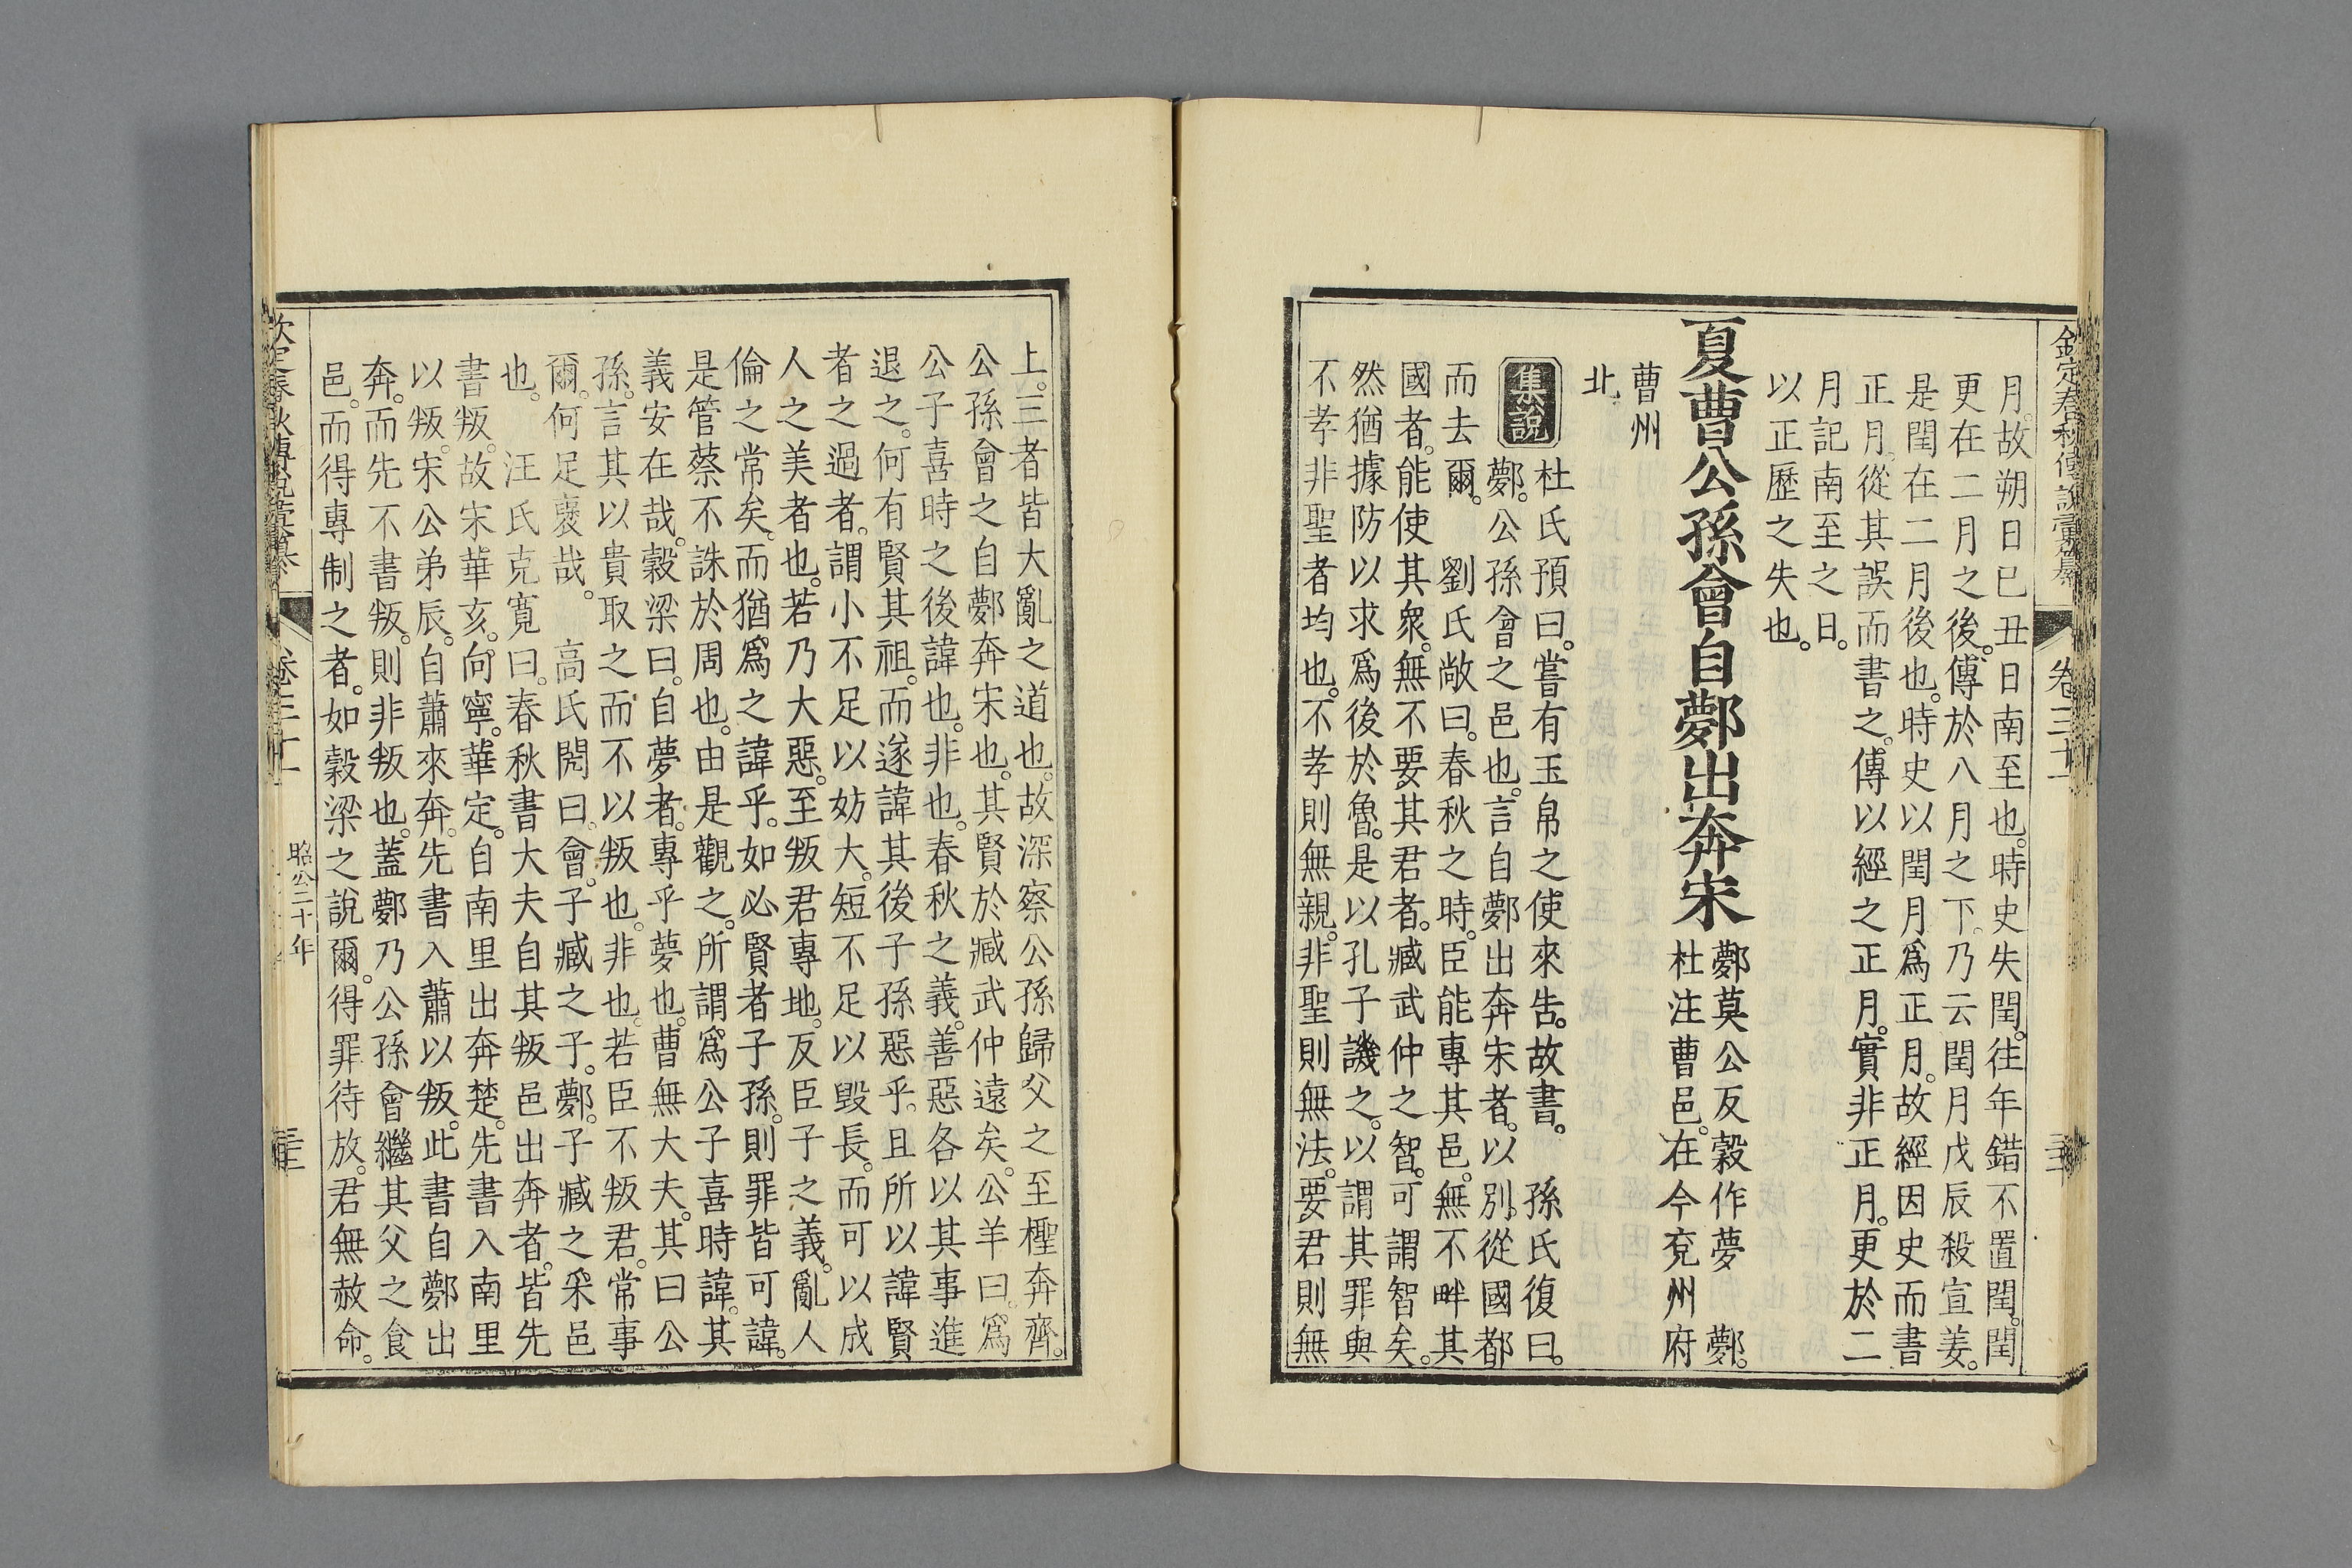 欽定春秋傳說彙纂　卷三十一
月。故朔日己丑日南至也。時史失閏。往年錯不置閏。閏
更在二月之後。傳於八月之下。乃云閏月戊辰殺宣姜。
是閏在二月後也。時史以閏月爲正月。故經因史而書
正月。從其誤而書之。傳以經之正月。實非正月。更於二
月記南至之日。
以正歷之失也。
夏曹公孫會自鄸出奔宋
鄸莫公反穀作夢　鄸。
杜注曹邑。在今兗州府
曹州
北。
集說
杜氏預曰。嘗有玉帛之使來告。故書。　孫氏復曰。
鄸。公孫會之邑也。言自鄸出奔宋者。以別從國都
而去爾。　劉氏敞曰。春秋之時。臣能專其邑。無不畔其
國者。能使其衆。無不要其君者。臧武仲之智。可謂智矣。
然猶據防以求爲後於魯。是以孔子譏之。以謂其罪與
不孝非聖者均也。不孝則無親。非聖則無法。要君則無
上。三者皆大亂之道也。故深察公孫歸父之至檉奔齊。
公孫會之自鄸奔宋也。其賢於臧武仲遠矣。公羊曰。爲
公子喜時之後諱也。非也。春秋之義。善惡各以其事進
退之。何有賢其祖。而遂諱其後子孫惡乎。且所以諱賢
者之過者。謂小不足以妨大。短不足以毀長。而可以成
人之美者也。若乃大惡。至叛君專地。反臣子之義。亂人
倫之常矣。而猶爲之諱乎。如必賢者子孫。則罪皆可諱。
是管蔡不誅於周也。由是觀之。所謂爲公子喜時諱。其
義安在哉。穀梁曰。自夢者。專乎夢也。曹無大夫。其曰公
孫。言其以貴取之而不以叛也。非也。若臣不叛君。常事
爾。何足襃哉。　高氏閌曰。會。子臧之子。鄸。子臧之采邑
也。　汪氏克寬曰。春秋書大夫自其叛邑出奔者。皆先
書叛。故宋華亥。向寧。華定。自南里出奔楚。先書入南里
以叛。宋公弟辰。自蕭來奔。先書入蕭以叛。此書自鄸出
奔。而先不書叛。則非叛也。蓋鄸乃公孫會繼其父之食
邑。而得專制之者。如穀梁之說爾。得罪待放。君無赦命。
欽定春秋傳說彙纂　卷三十一　昭公二十年